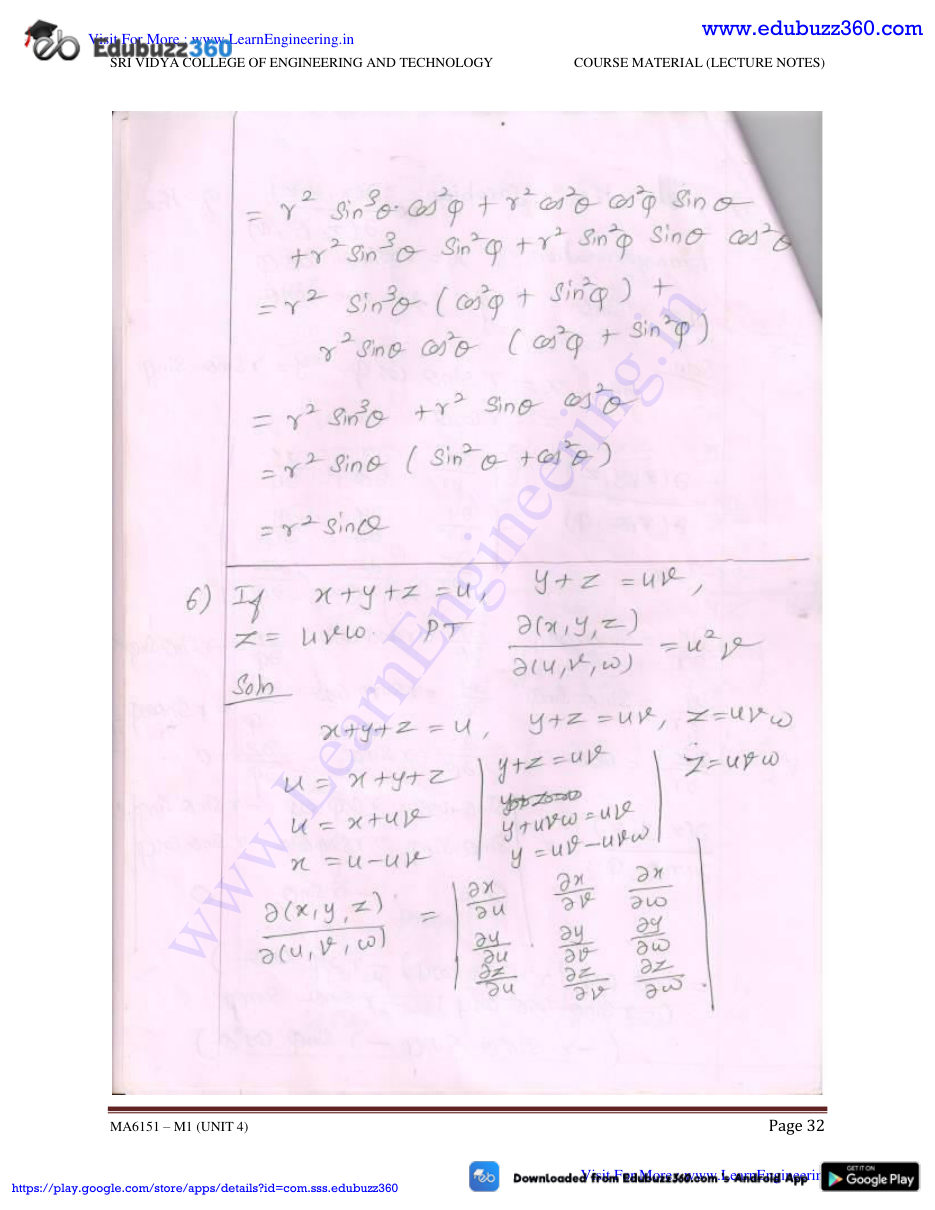 www.edubuzz360.com
Visit For More : www.LearnEngineering.in
Edubuzz360
SRI VIDYA COLLEGE OF ENGINEERING AND TECHNOLOGY COURSE MATERIAL (LECTURE NOTES)
= r² sin³θ · cos²φ + r² cos²θ cos²φ sinθ
+ r² sin³θ sin²φ + r² sin²φ sinθ cos²θ
= r² sin³θ ( cos²φ + sin²φ ) +
r² sinθ cos²θ ( cos²φ + sin²φ )
= r² sin³θ + r² sinθ cos²θ
= r² sinθ ( sin²θ + cos²θ )
= r² sinθ
6) If x+y+z = u, y+z = uv,
z = uvw. PT ∂(x,y,z)/∂(u,v,w) = u²v
Soln
x+y+z = u, y+z = uv, z=uvw
u = x+y+z | y+z = uv | z=uvw
u = x+uv | y+uvw = uv
x = u-uv | y = uv-uvw
∂(x,y,z)/∂(u,v,w) = | ∂x/∂u ∂x/∂v ∂x/∂w |
| ∂y/∂u ∂y/∂v ∂y/∂w |
| ∂z/∂u ∂z/∂v ∂z/∂w |
www.LearnEngineering.in
MA6151 – M1 (UNIT 4) Page 32
https://play.google.com/store/apps/details?id=com.sss.edubuzz360
Downloaded from EduBuzz360.com 's Android App
Visit For More : www.LearnEngineerin
GET IT ON
Google Play